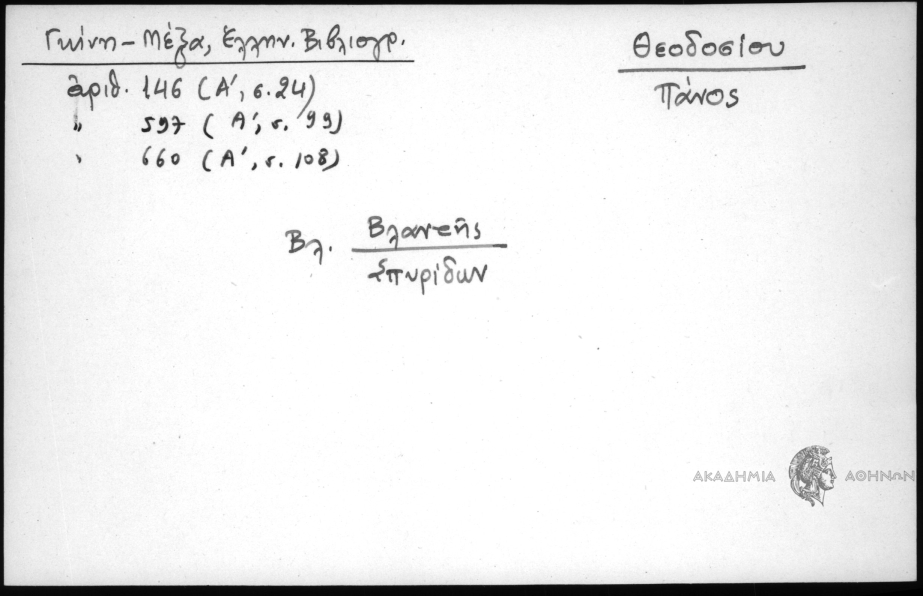 Γκίνη - Μέξα, Ἑλλην. Βιβλιογρ.
ἀριθ. 146 (Α', σ. 24)
" 597 (Α', σ. 99)
" 660 (Α', σ. 108)
Θεοδοσίου
Πάνος
Βλ. Βλαντῆς
Σπυρίδων
ΑΚΑΔΗΜΙΑ ΑΘΗΝΩΝ